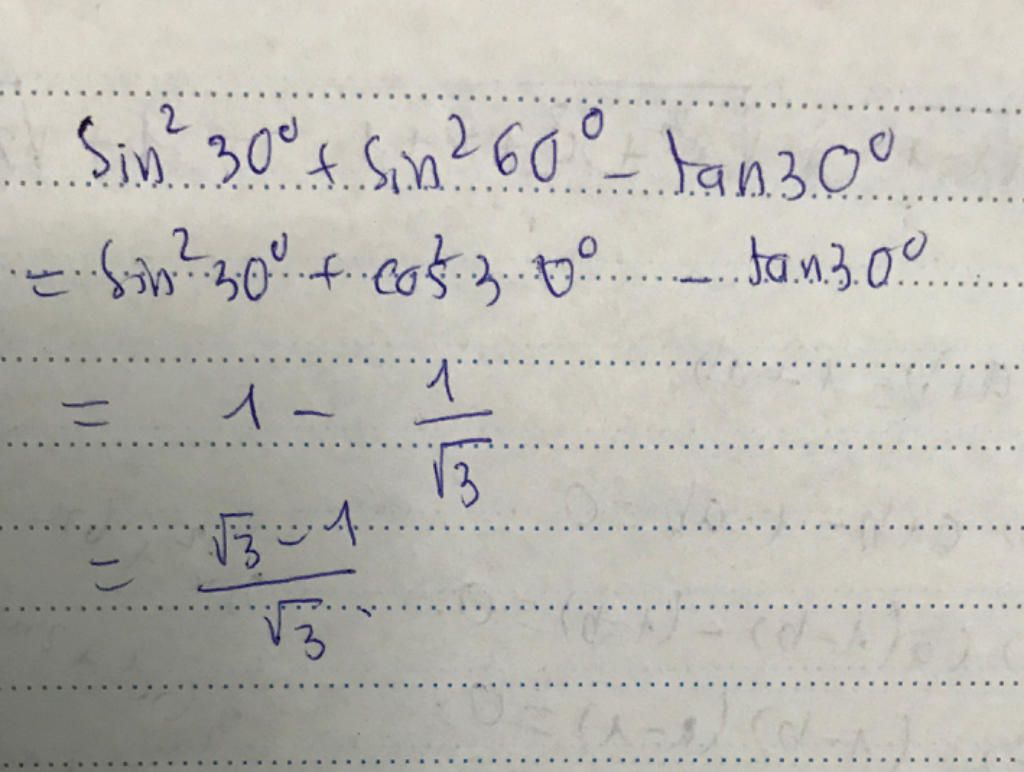 sin² 30⁰ + sin² 60⁰ - tan30⁰
= sin² 30⁰ + cos² 30⁰ - tan30⁰
= 1 - 1/√3
= (√3 - 1)/√3.